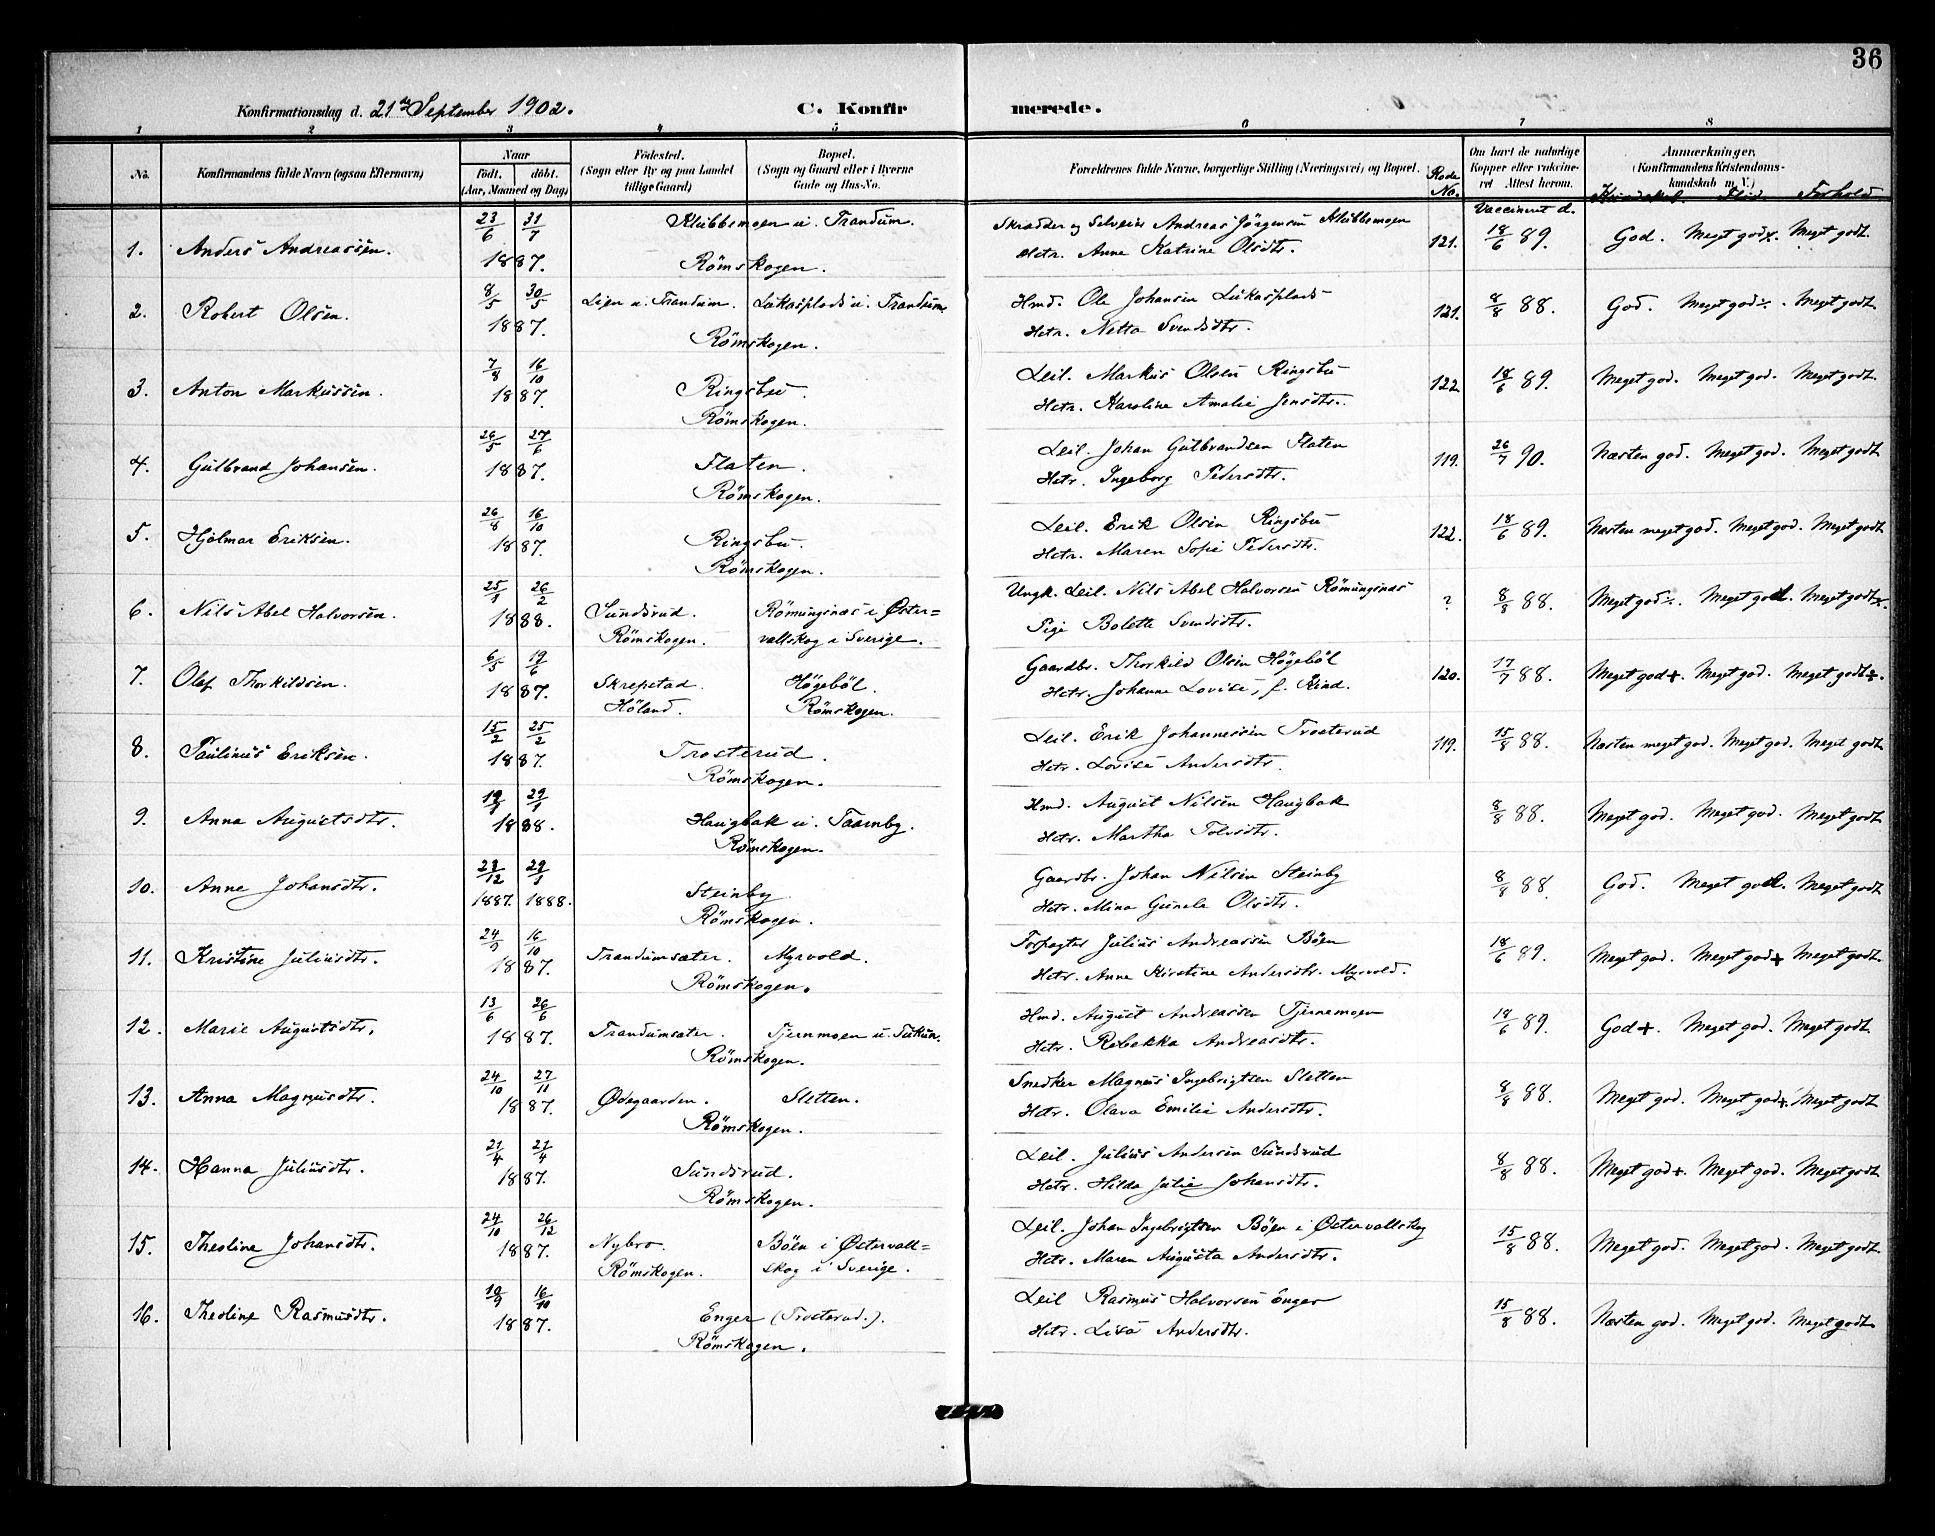 36
Konfirmationsdag d. 21de September 1902. C. Konfirmerede.
1 2 3 4 5 6 7 8
No. Konfirmandens fulde Navn (ogsaa Efternavn) Naar født. døbt. (Aar, Maaned og Dag) Fødested. (Sogn eller By og paa Landet tillige Gaard) Bopæl. (Sogn og Gaard eller i Byerne Gade og Hus-No. Forældrenes fulde Navne, borgerlige Stilling (Næringsvei) og Bopæl. Rode No. Om havt de naturlige Kopper eller vakcineret Attest herom. Anmærkninger. (Konfirmandens Kristendomskundskab m. V.)
Vaccineret d. Kundskab. Flid. Forhold
1. Anders Andreassen. 23/6 31/7 1887. Klubbemoen u. Trandum. Römskogen. Skrædder og Selveier Andreas Jörgensen Klubbemoen Hstr. Anne Katrine Olsdtr. 121. 18/6 89. God. Meget god+. Meget godt.
2. Robert Olsen. 8/5 30/5 1887. Lien u. Trandum. Lukasplads u. Trandum. Römskogen. Hmd. Ole Johansen Lukasplads Hstr. Netta Svendsdtr. 121. 8/8 88. God. Meget god÷. Meget godt.
3. Anton Markussen. 7/8 16/10 1887. Ringsbu. Römskogen. Leil. Markus Olsen Ringsbu Hstr. Karoline Amalie Jensdtr. 122 18/6 89. Meget god. Meget god. Meget godt.
4. Gulbrand Johansen. 26/5 27/6 1887. Flaten. Römskogen. Leil. Johan Gulbrandsen Flaten Hstr. Ingeborg Pedersdtr. 119. 26/7 90. Næsten god. Meget god. Meget godt
5. Hjalmar Eriksen. 26/8 16/10 1887. Ringsbu. Römskogen. Leil. Erik Olsen Ringsbu Hstr. Maren Sofie Pedersdtr. 122. 18/6 89. Næsten meget god. Meget god. Meget godt
6. Nils Abel Halvorsen. 25/1 26/2 1888. Sundsrud. Römskogen. Römungsnæs i Østervallskog i Sverige. Ungk. Leil. Nils Abel Halvorsen Römungsnæs Pige Bolette Svendsdtr. ? 8/8 88. Meget god÷. Meget god. Meget godt+.
7. Olaf Thorkildsen. 6/5 19/6 1887. Skrepstad. Höland. Högeböl. Römskogen. Gaardbr. Thorkild Olsen Högeböl Hstr. Johanne Lovise, f. Kind. 120. 17/7 88. Meget god+. Meget god. Meget godt+.
8. Paulinus Eriksen. 15/2 25/2 1887. Trosterud. Römskogen. Leil. Erik Johannessen Trosterud Hstr. Lovise Andersdtr. 119. 15/8 88. Næsten meget god. Meget god. Meget godt
9. Anna Augustsdtr. 19/1 29/1 1888. Haugbak u. Taarnby. Römskogen. Hmd. August Nilsen Haugbak Hstr. Martha Tolvsdtr. 8/8 88. Meget god. Meget god. Meget godt
10. Anne Johansdtr. 23/12 1887. 29/1 1888. Steinby Römskogen. Gaardbr. Johan Nilsen Steinby Hstr. Mina Gunela Olsdtr. 8/8 88 God. Meget god. Meget godt
11. Kristine Juliusdtr. 24/9 16/10 1887. Trandumsæter. Myrvold. Römskogen. Forpagter Julius Andreassen Böen Hstr. Anne Kirstine Andersdtr. Myrvold. 18/6 89. Meget god. Meget god+ Meget godt.
12. Marie Augustsdtr. 13/6 26/6 1887. Trandumsæter. Tjernmoen u. Römskogen. Hmd. August Andreassen Tjernemoen Hstr. Rebekka Andreasdtr. 18/6 89. God+. Meget god. Meget godt
13. Anna Magnusdtr. 24/10 27/11 1887. Ødegaarden. Sletten. Römskogen. Snedker Magnus Ingebrigtsen Sletten Hstr. Olava Emilie Andersdtr. 8/8 88. Meget god. Meget god+. Meget godt
14. Hanna Juliusdtr. 21/4 21/4 1887. Sundsrud. Römskogen. Leil. Julius Andersen Sundsrud Hstr. Hilda Julie Johansdtr. 8/8 88. Meget god+. Meget god. Meget godt
15. Theoline Johansdtr. 24/10 26/12 1887. Nybro. Römskogen. Böen i Østervallskog i Sverige. Leil. Johan Ingebrigtsen Böen i Østervallskog Hstr. Maren Augusta Andersdtr. 15/8 88. Meget god. Meget god. Meget godt
16. Theoline Rasmusdtr. 19/9 16/10 1887. Enger (Trosterud.). Römskogen. Leil Rasmus Halvorsen Enger Hstr. Lisa Andersdtr. 15/8 88. Næsten god. Meget god. Meget godt